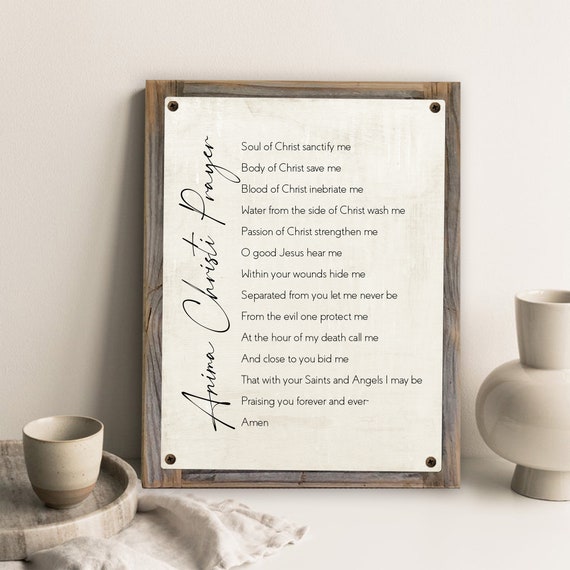 Anima Christi Prayer
Soul of Christ sanctify me
Body of Christ save me
Blood of Christ inebriate me
Water from the side of Christ wash me
Passion of Christ strengthen me
O good Jesus hear me
Within your wounds hide me
Separated from you let me never be
From the evil one protect me
At the hour of my death call me
And close to you bid me
That with your Saints and Angels I may be
Praising you forever and ever-
Amen